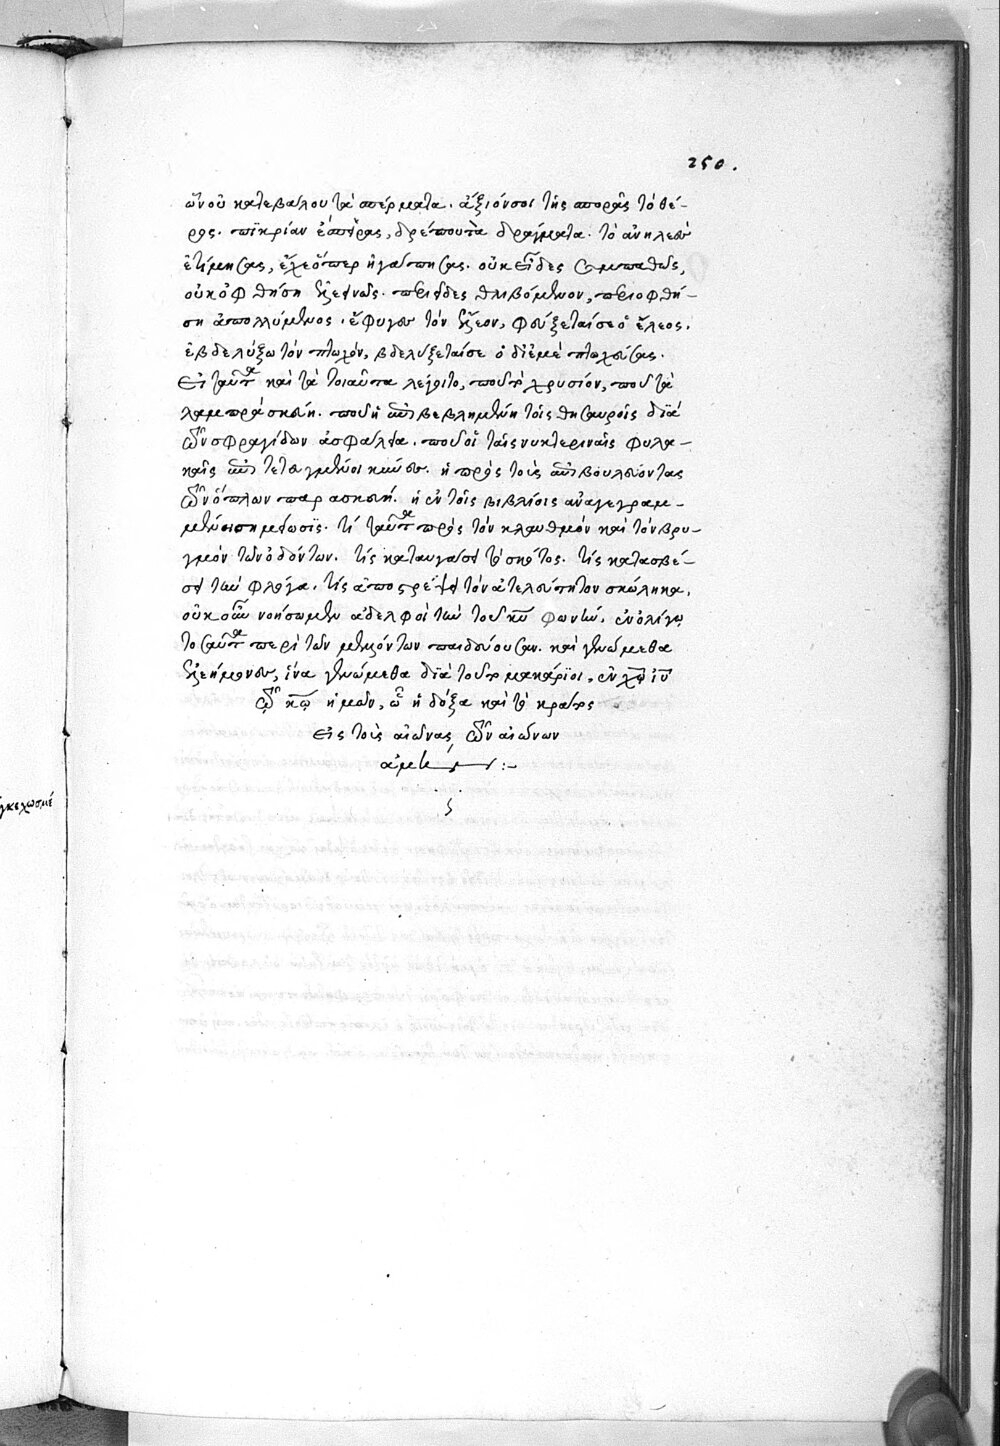 250.
ὧν οὐ κατεβάλου τὰ σπέρματα. ἀξιόνσοι τῆς σπορᾶς τὸ θέ-
ρος. πικρίαν ἔσπειρας, δρέπου τὰ δράγματα. τὸ ἀνηλεὲς
ἐτίμησας, ἔχε ὅπερ ἠγάπησας. οὐκ εἶδες συμπαθῶς,
οὐκ ὀφθήσῃ ἐλεεινῶς. περιεῖδες θλιβόμενον, περιοφθή-
σῃ ἀπολλύμενος. ἔφυγες τὸν ἔλεον, φεύξεταί σε ὁ ἔλεος.
ἐβδελύξω τὸν πτωχόν, βδελύξεταί σε ὁ δι' ἐμὲ πτωχεύσας.
Εἰ ταῦτα καὶ τὰ τοιαῦτα λέγοιτο, ποῦ τὸ χρυσίον, ποῦ τὰ
λαμπρὰ σκεύη. ποῦ ἡ ἐπιβεβλημένη τοῖς θησαυροῖς διὰ
τῶν σφραγίδων ἀσφάλεια. ποῦ οἱ ταῖς νυκτεριναῖς φυλα-
καῖς ἐπιτεταγμένοι κύνες. ἡ πρὸς τοὺς ἐπιβουλεύοντας
τῶν ὅπλων παρασκευή. ἡ ἐν τοῖς βιβλίοις ἀναγεγραμ-
μένη σημείωσις. τί ταῦτα πρὸς τὸν κλαυθμὸν καὶ τὸν βρυ-
γμὸν τῶν ὀδόντων. τίς καταυγάσει τὸ σκότος. τίς κατασβέ-
σει τὴν φλόγα. τίς ἀποστρέψει τὸν ἀτελεύτητον σκώληκα.
οὐκοῦν νοήσωμεν ἀδελφοὶ τὴν τοῦ κυ φωνὴν, ἐν ὀλίγῳ
τοσαῦτα περὶ τῶν μελλόντων παιδεύουσαν. καὶ γενώμεθα
ἐλεήμονες, ἵνα γενώμεθα διὰ τούτου μακάριοι, ἐν χω ιυ
τῷ κω ἡμῶν, ᾧ ἡ δόξα καὶ τὸ κράτος
εἰς τοὺς αἰῶνας τῶν αἰώνων
ἀμήν:~